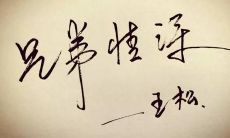 兄弟情深
王松.